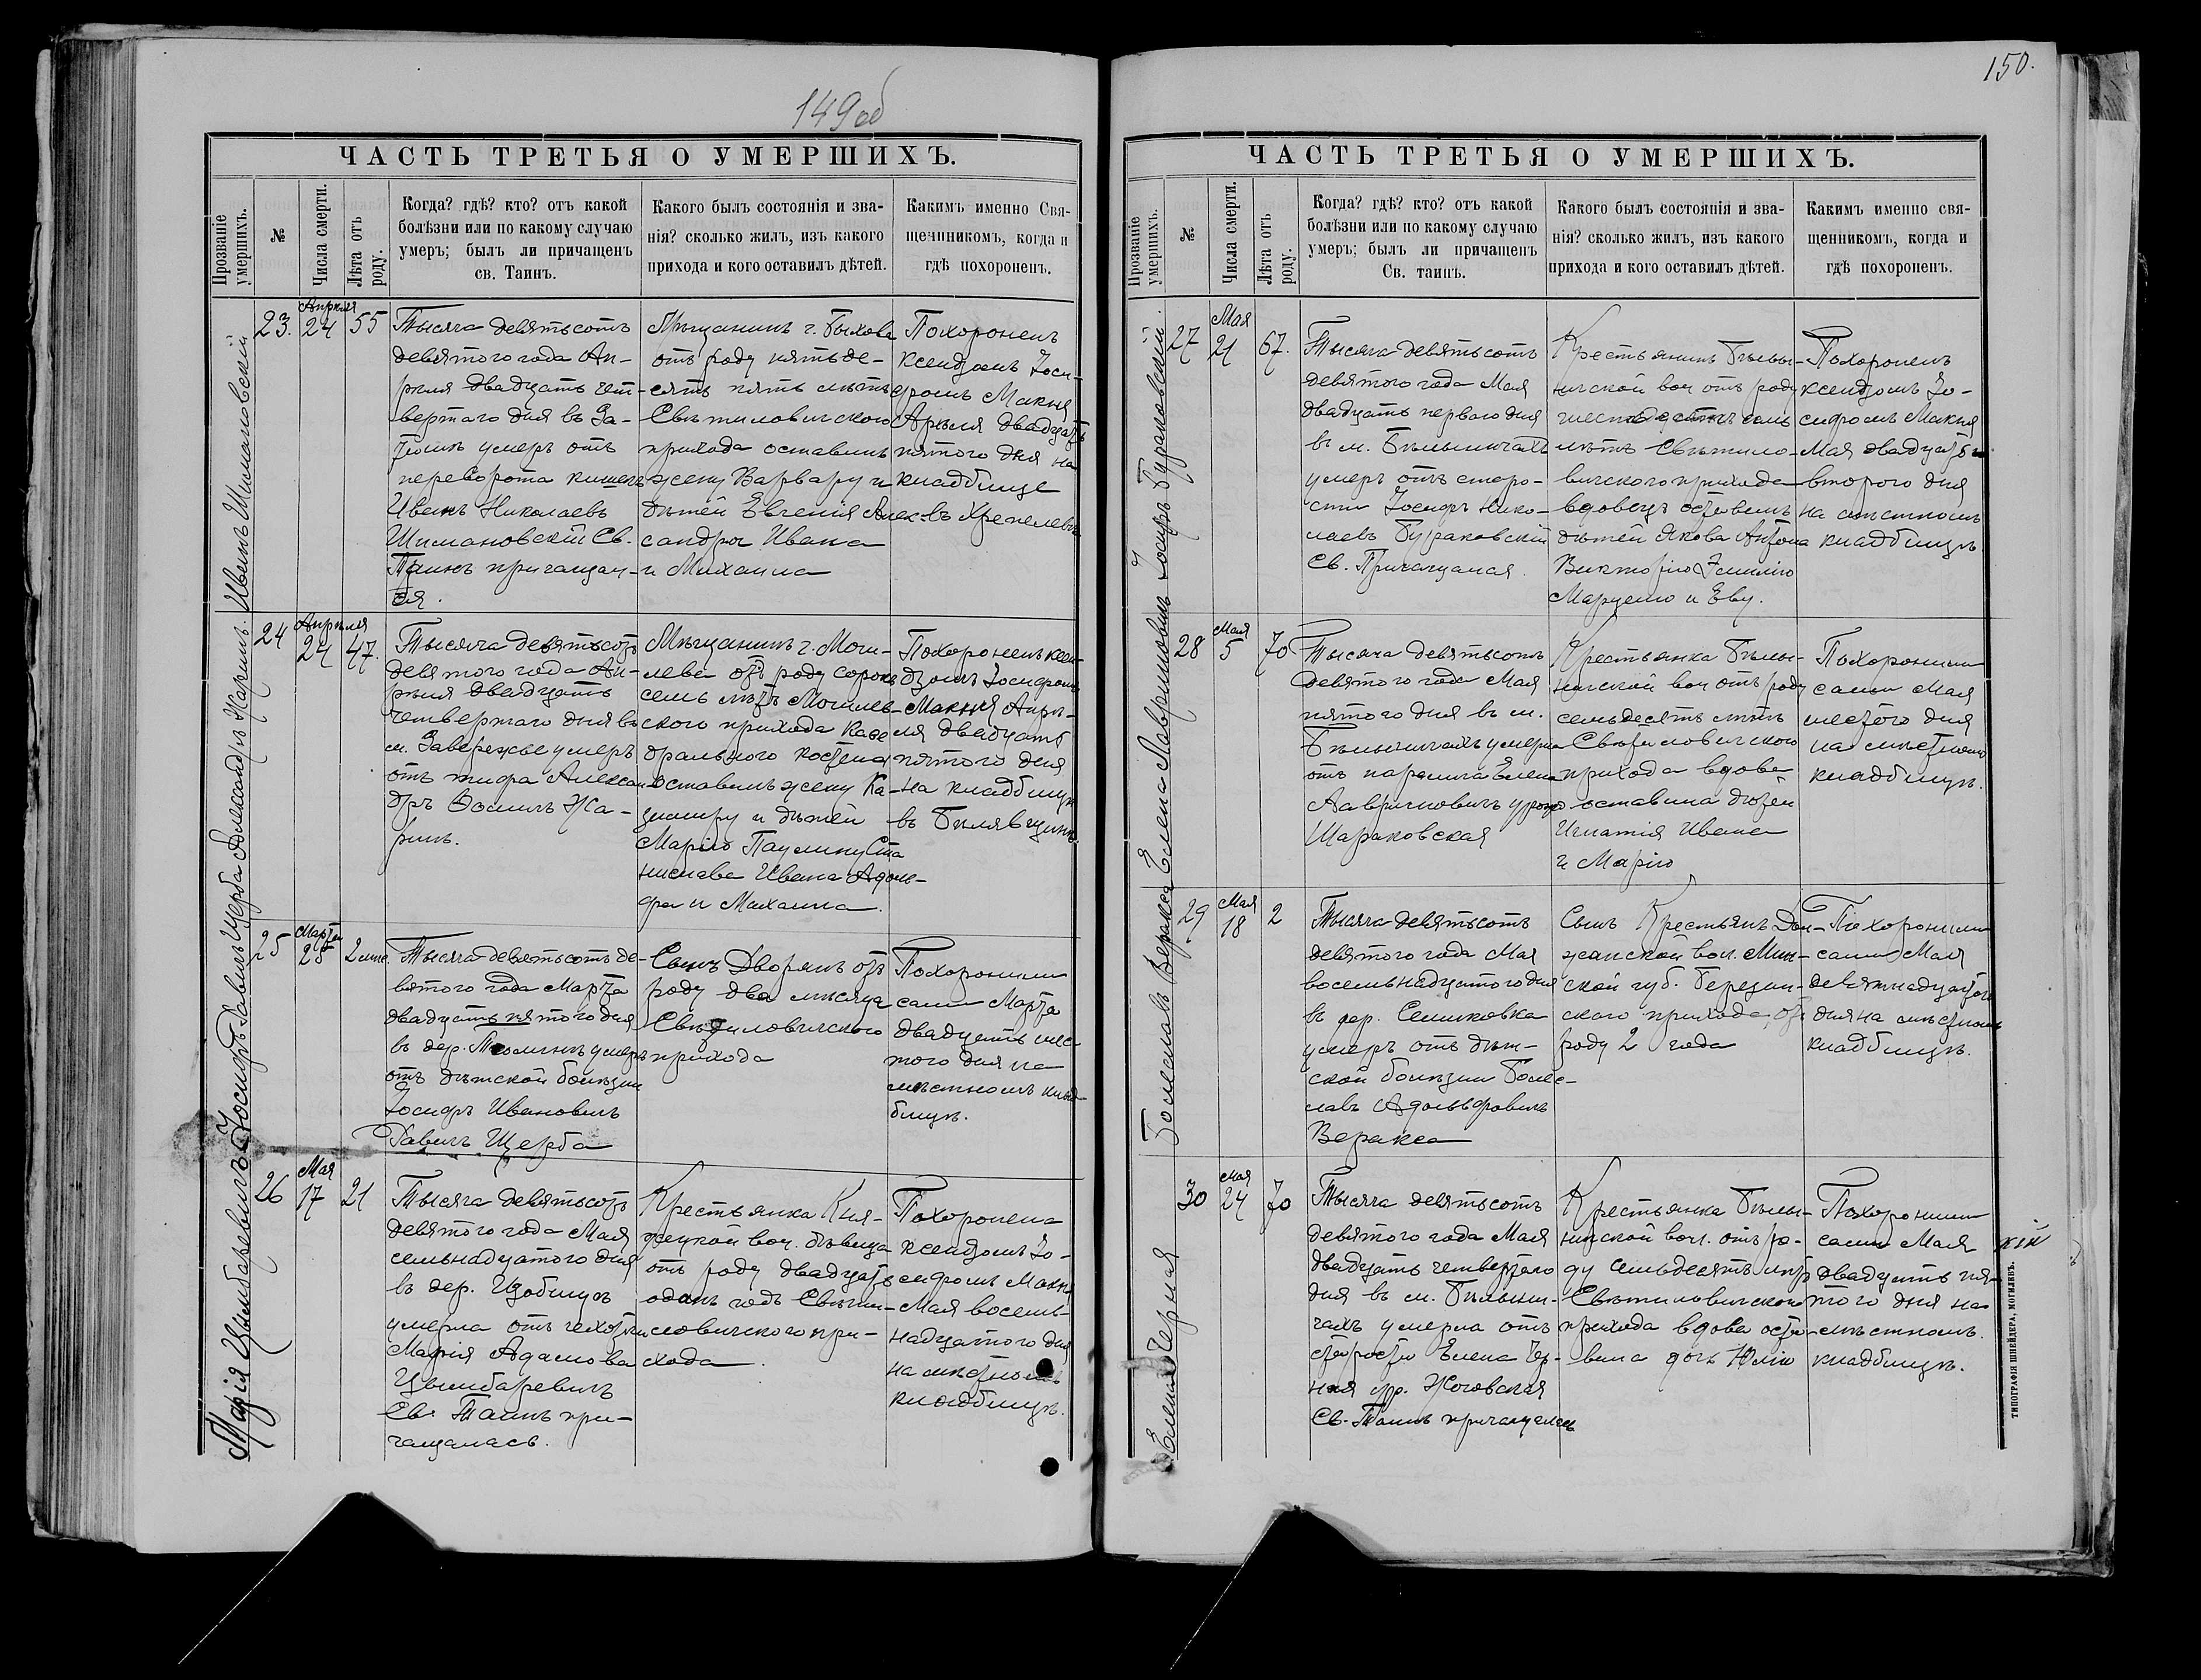 149 об
ЧАСТЬ ТРЕТЬЯ О УМЕРШИХЪ.
Прозваніе умершихъ.
№
Числа смерти.
Лѣта отъ роду.
Когда? гдѣ? кто? отъ какой
болѣзни или по какому случаю
умеръ; былъ ли причащенъ
св. Таинъ.
Какого былъ состоянія и зва-
нія? сколько жилъ, изъ какого
прихода и кого оставилъ дѣтей.
Какимъ именно Свя-
щенникомъ, когда и
гдѣ похороненъ.
Иванъ Шимановскій
23.
Апрѣля
24
55
Тысяча девятьсотъ
девятого года Ап-
рѣля двадцать чет-
вертаго дня въ За-
умеръ отъ
переворота кишекъ
Иванъ Николаевъ
Шимановскій Св.
Таинъ причащал-
ся.
Мѣщанинъ г. Быхова
отъ роду пятьде-
сятъ пять лѣтъ
Свѣтиловичского
прихода оставилъ
жену Варвару и
дѣтей Евгенія Алек-
сандра Ивана
и Михаила
Похороненъ
ксендзомъ Іоси-
фомъ Макня
Апрѣля двадцать
пятого дня на
кладбище
въ Хрепелевѣ
Александръ Жаринъ.
24
Апрѣля
24
47.
Тысяча девятьсотъ
девятого года Ап-
рѣля двадцать
четвертаго дня въ
м. Завережье умеръ
отъ тифа Алексан-
дръ Ѳоминъ Жа-
ринъ.
Мѣщанинъ г. Моги-
лева отъ роду сорокъ
семь лѣтъ Могилев-
ского прихода Каѳе
дрального костела
оставилъ жену Ка-
зимиру и дѣтей
Марію Паулину Ста
нислава Ивана Адоль-
фа и Михаила.
Похороненъ ксен-
дзомъ Іосифомъ
Макня Апрѣ-
ля двадцать
пятого дня
на кладбищѣ
въ Белявщинѣ.
Іосифъ Гавинъ Щерба
25
Марта
25
2 мѣс.
Тысяча девятьсотъ де-
вятого года Марта
двадцать пятого дня
въ дер. умеръ
отъ дѣтской болѣзни
Іосифъ Ивановичъ
Гавинъ Щерба
Сынъ Дворянъ отъ
роду два мѣсяца
Свѣтиловичского
прихода
Похоронили
сами Марта
двадцать шес-
того дня на
мѣстномъ клад-
бищѣ.
Марія Цымбаревичъ
26
Мая
17
21
Тысяча девятьсотъ
девятого года Мая
семьнадцатого дня
въ дер. Изобищѣ
умерла отъ чехотки
Марія Адамова
Цымбаревичъ
Св. Таинъ при-
чащалась.
Крестьянка Кня-
жецкой вол. дѣвица
отъ роду двадцать
одинъ годъ Свѣти-
ловичского при-
хода.
Похоронена
ксендзомъ Іо-
сифомъ Макня
Мая восемь-
надцатого дня
на мѣстномъ
кладбищѣ.
150.
ЧАСТЬ ТРЕТЬЯ О УМЕРШИХЪ.
Прозваніе умершихъ.
№
Числа смерти.
Лѣта отъ роду.
Когда? гдѣ? кто? отъ какой
болѣзни или по какому случаю
умеръ; былъ ли причащенъ
Св. таинъ.
Какого былъ состоянія и зва-
нія? сколько жилъ, изъ какого
прихода и кого оставилъ дѣтей.
Какимъ именно свя-
щенникомъ, когда и
гдѣ похороненъ.
Іосифъ Бураковскій.
27
Мая
21
67.
Тысяча девятьсотъ
девятого года Мая
двадцать перваго дня
въ м. Бѣлыничахъ
умеръ отъ старо-
сти Іосифъ Нико-
лаевъ Бураковскій
Св. Причащался.
Крестьянинъ Бѣлы-
ничской вол отъ роду
шестьдесятъ семь
лѣтъ Свѣтило-
вичского прихода
вдовецъ оставилъ
дѣтей Якова Антона
Викторію Эмилію
Марцелю и Еву.
Похороненъ
ксендзомъ Іо-
сифомъ Макня
Мая двадцать
второго дня
на мѣстномъ
кладбищѣ.
Елена Лавриновичъ
28
Мая
5
70
Тысяча девятьсотъ
девятого года Мая
пятого дня въ м.
Бѣлыничахъ умерла
отъ паралича Елена
Лавриновичъ урожд
Шараковская
Крестьянка Бѣлы-
ничской вол отъ роду
семьдесятъ лѣтъ
Свѣтиловичского
прихода вдова
оставила дѣтей
Игнатія Ивана
и Марію
Похоронили
сами Мая
шестого дня
на мѣстномъ
кладбищѣ.
Болеславъ Веракса
29
Мая
18
2
Тысяча девятьсотъ
девятого года Мая
восемьнадцатого дня
въ дер. Семиковка
умеръ отъ дѣт-
ской болѣзни Боле-
славъ Адольфовичъ
Веракса
Сынъ Крестьянъ
жанской вол. Мин-
ской губ. Березин-
ского прихода, отъ
роду 2 года
Похоронили
сами Мая
девятнадцатого
дня на мѣстномъ
кладбищѣ.
Елена Черная
30
Мая
24
70
Тысяча девятьсотъ
девятого года Мая
двадцать четвертаго
дня въ м. Бѣлыни-
чахъ умерла отъ
старости Елена Чер-
ная ур. Жоговская
Св. Таинъ причащалась
Крестьянка Бѣлы-
ничской вол. отъ ро-
ду семьдесятъ лѣтъ
Свѣтиловичского
прихода вдова оста-
вила дочь Юлію
Похоронили
сами Мая
двадцать пя-
того дня на
мѣстномъ.
кладбищѣ.
ТИПОГРАФІЯ ШНЕЙДЕРА, МОГИЛЕВЪ.